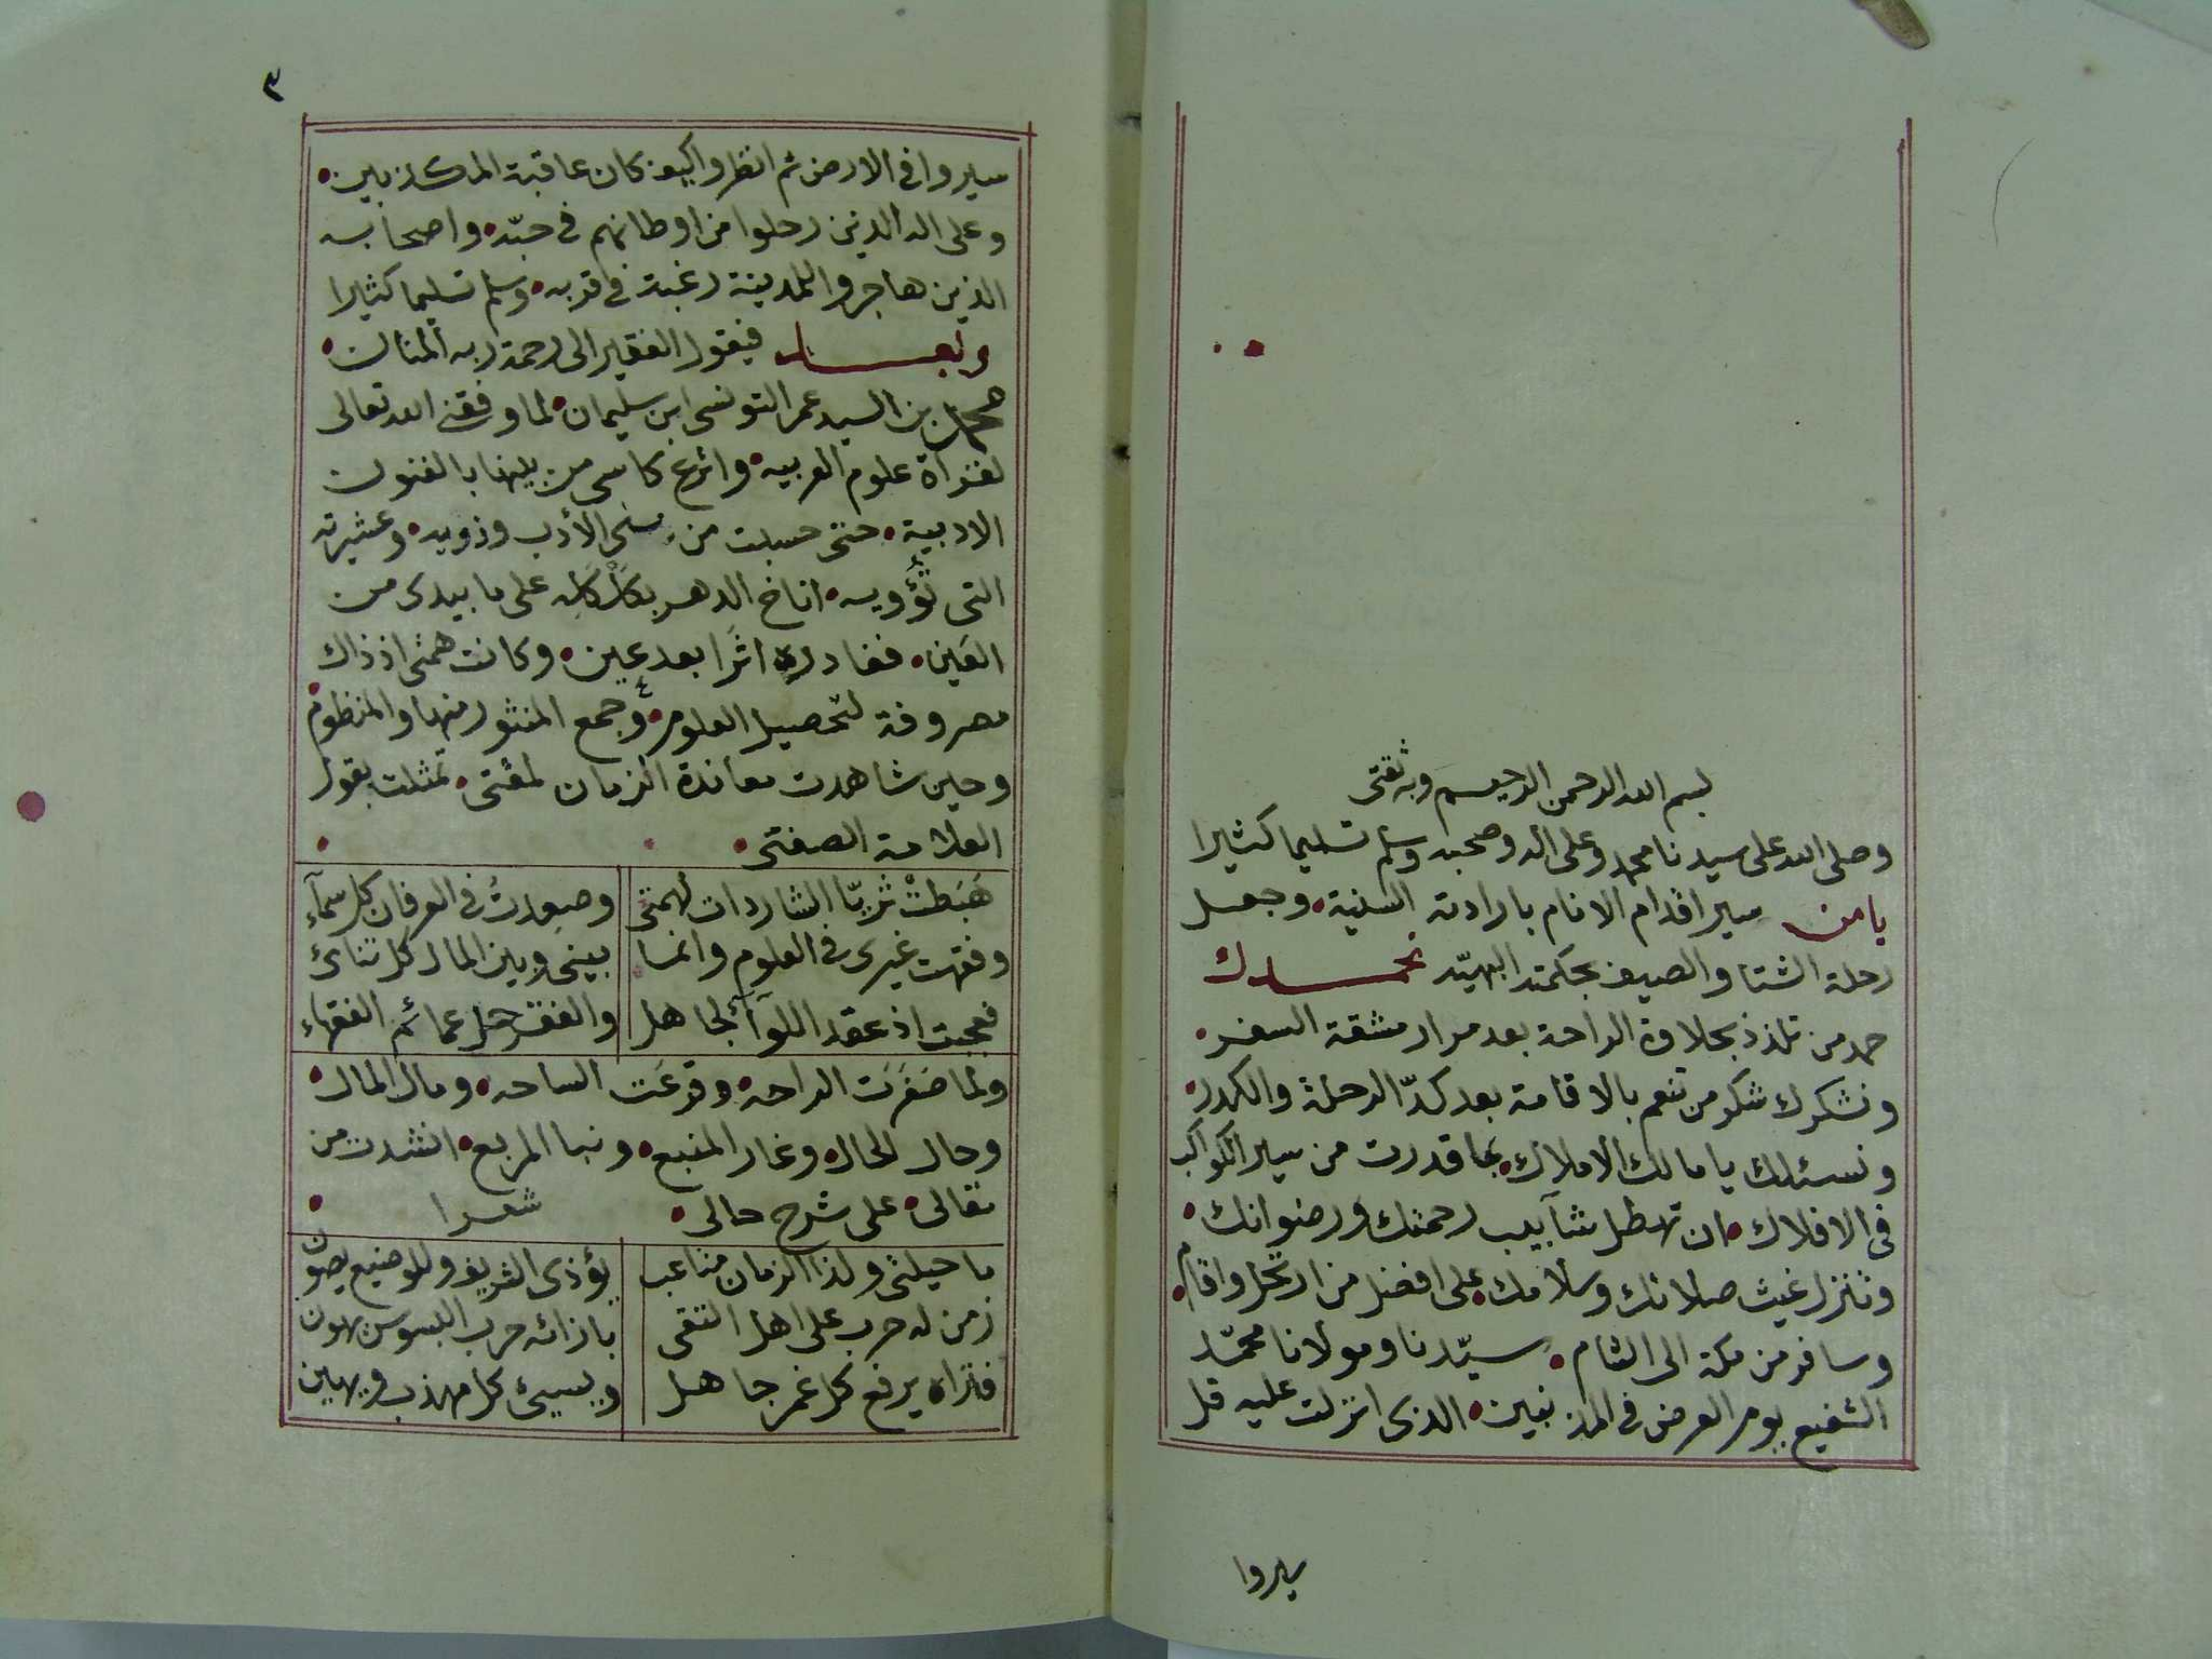 بسم الله الرحمن الرحيم وبه ثقتى
وصلى الله على سيدنا محمد وعلى اله وصحبه وسلم تسليما كثيرا
يا من سير اقدام الانام بارادته السنية، وجعل
رحلة الشتا والصيف بحكمته البهيّه نحمدك
حمد من تلذذ بحلاوة الراحة بعد مرار مشقة السفر،
ونشكرك شكر من تنعم بالاقامة بعد كدّ الرحلة والكدر،
ونسئلك يا مالك الاملاك، بما قدرت من سير الكواكب
فى الافلاك، ان تهطل شآبيب رحمتك ورضوانك،
وتنزل غيث صلاتك وسلامك، على افضل من ارتحل واقام،
وسافر من مكة الى الشام، سيّدنا ومولانا محمّد
الشفيع يوم العرض فى المذنبين، الذى انزلت عليه قل
سيروا
٣
سيروا فى الارض ثم انظروا كيف كان عاقبة المكذبين،
وعلى اله الذين رحلوا من اوطانهم فى حبّه، واصحابه
الذين هاجروا للمدينة رغبة فى قربه، وسلم تسليما كثيرا
وبعد فيقول الفقير الى رحمة ربه المنان،
محمد بن السيد عمر التونسى ابن سليمان، لما وفقنى الله تعالى
لقرأة علوم العربيه، واترع كاسى من بينها بالفنون
الادبية، حتى حسبت من بنى الأدب وذويه، وعشيرته
التى تُؤويه، اناخ الدهر بكَلْكَلِه على ما بيدى من
العَين، فغادره اثرًا بعد عين، وكانت همتى اذ ذاك
مصروفة لتحصيل العلوم، وجمع المنثور منها والمنظوم،
وحين شاهدت معاندة الزمان لمقتى، تمثلت بقول
العلامة الصفتى،
هَبَطتْ ثريّا الشاردات لهمتى وصعدتُ فى العرفان كل سمآء
وفقهت غيرى فى العلوم وانما بينى وبين المال كل تنائ
فعجبت اذ عقد اللوآ لجاهل والفقر حل عمائم الفقهاء
ولما صَفِرَت الراحه، وقرعَت الساحه، ومال المال،
وحال الحال، وغار المنبع، ونبا المربع، انشدت من
مقالى، على شرح حالى، شعرا
ما حيلتى ولذا الزمان متاعب يؤذى الشريف وللوضيع يصون
زمن له حرب على اهل التقى بازائه حرب البسوس يهون
فتراه يرفع كل غمر جاهل ويسيئ كل مهذب ويهين